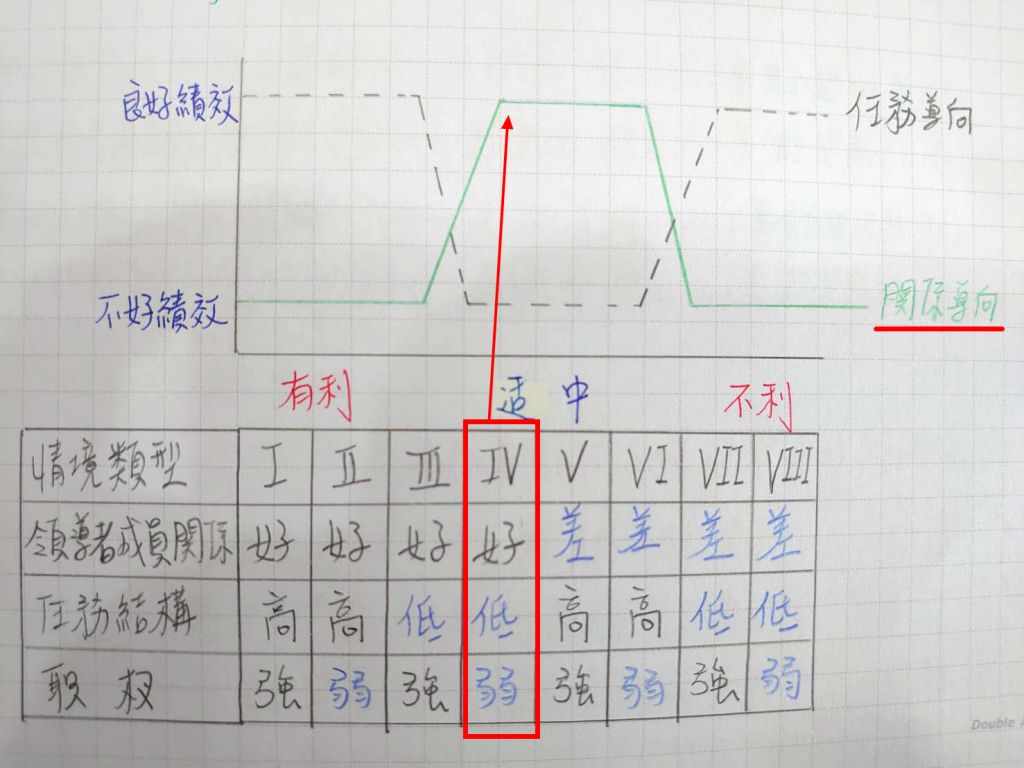 良好績效
任務導向
不好績效
関係導向
有利 适中 不利
情境類型 I II III IV V VI VII VIII
領導者成員関係 好 好 好 好 差 差 差 差
任務結構 高 高 低 低 高 高 低 低
职权 強 弱 強 弱 強 弱 強 弱
Double A